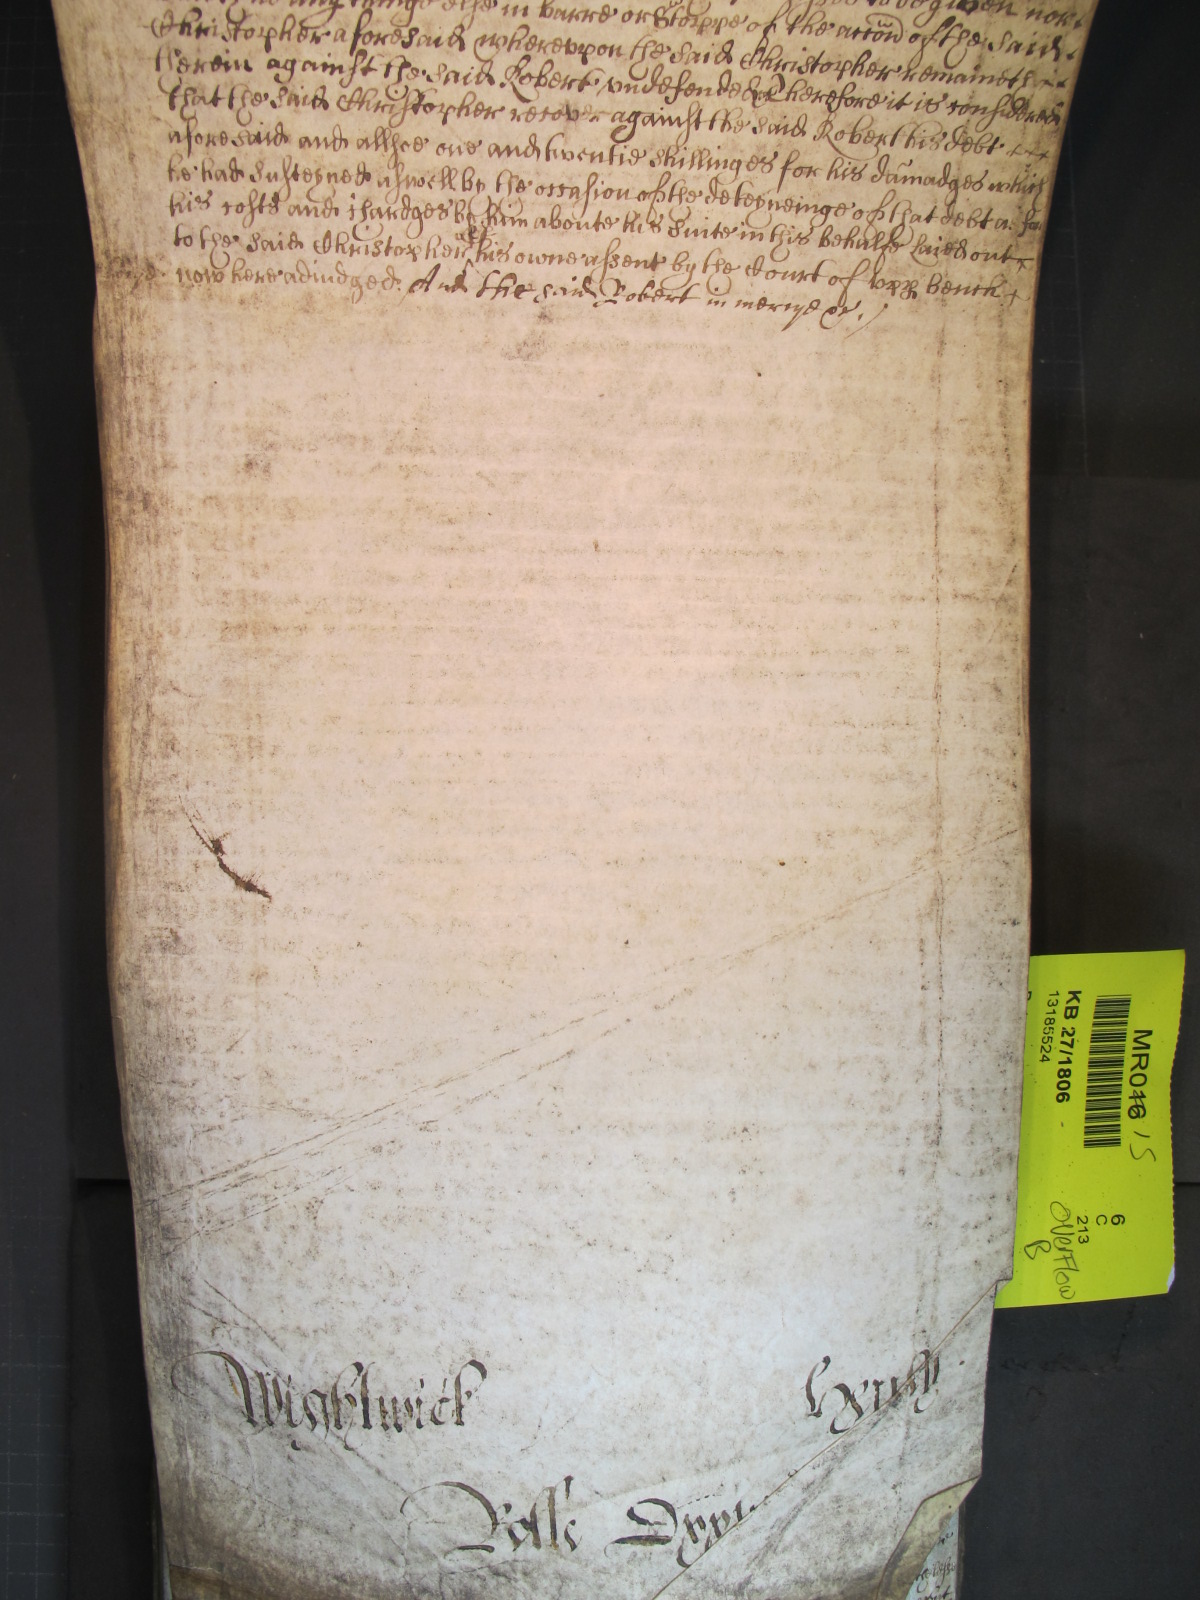 any thinge else in barre or Stoppe of the accõn of the said
Christopher aforesaid whereupon the said Christopher remaineth
therein against the said Robert undefended Therefore it is considered
that the said Christopher recover against the said Robert his debt
aforesaid and allsoe one and twentie shillinges for his damadges which
he had susteyned aswell by the occasion of the deteyneinge of that debt as for
his costs and chardges by him aboute his suite in his behalfe laied out
to the said Christopher att his owne assent by the Court of upp bench
now here adiudged. And the said Robert in mercye &c.
Wightwick
Rolle
MR046 15
KB 27/1806
13185524
6
C
213
Overflow
B